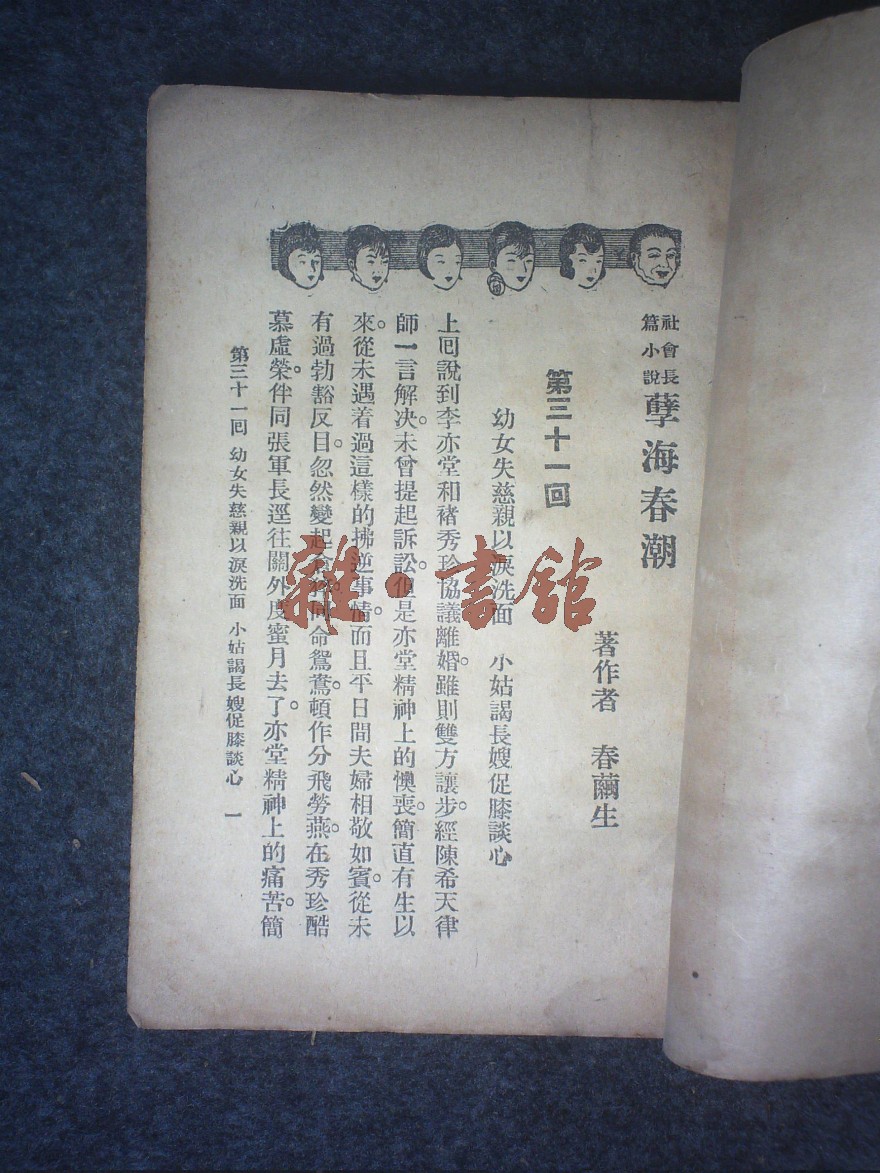 社會長
篇小說
孽海春潮
著作者　春繭生
第三十一回
幼女失慈親以淚洗面　小姑謁長嫂促膝談心
上回說到李亦堂和褚秀珍協議離婚。雖則雙方讓步。經陳希天律
師一言解決。未曾提起訴訟。但是亦堂精神上的懊喪。簡直有生以
來。從未遇着過這樣的拂逆事情。而且平日間夫婦相敬如賓。從未
有過勃谿反目。忽然變起 同命鴛鴦。頓作分飛勞燕。在秀珍酷
慕虛榮。伴同張軍長逕往關外度蜜月去了。亦堂精神上的痛苦。簡
第三十一回　幼女失慈親以淚洗面　小姑謁長嫂促膝談心　一
雜·書館